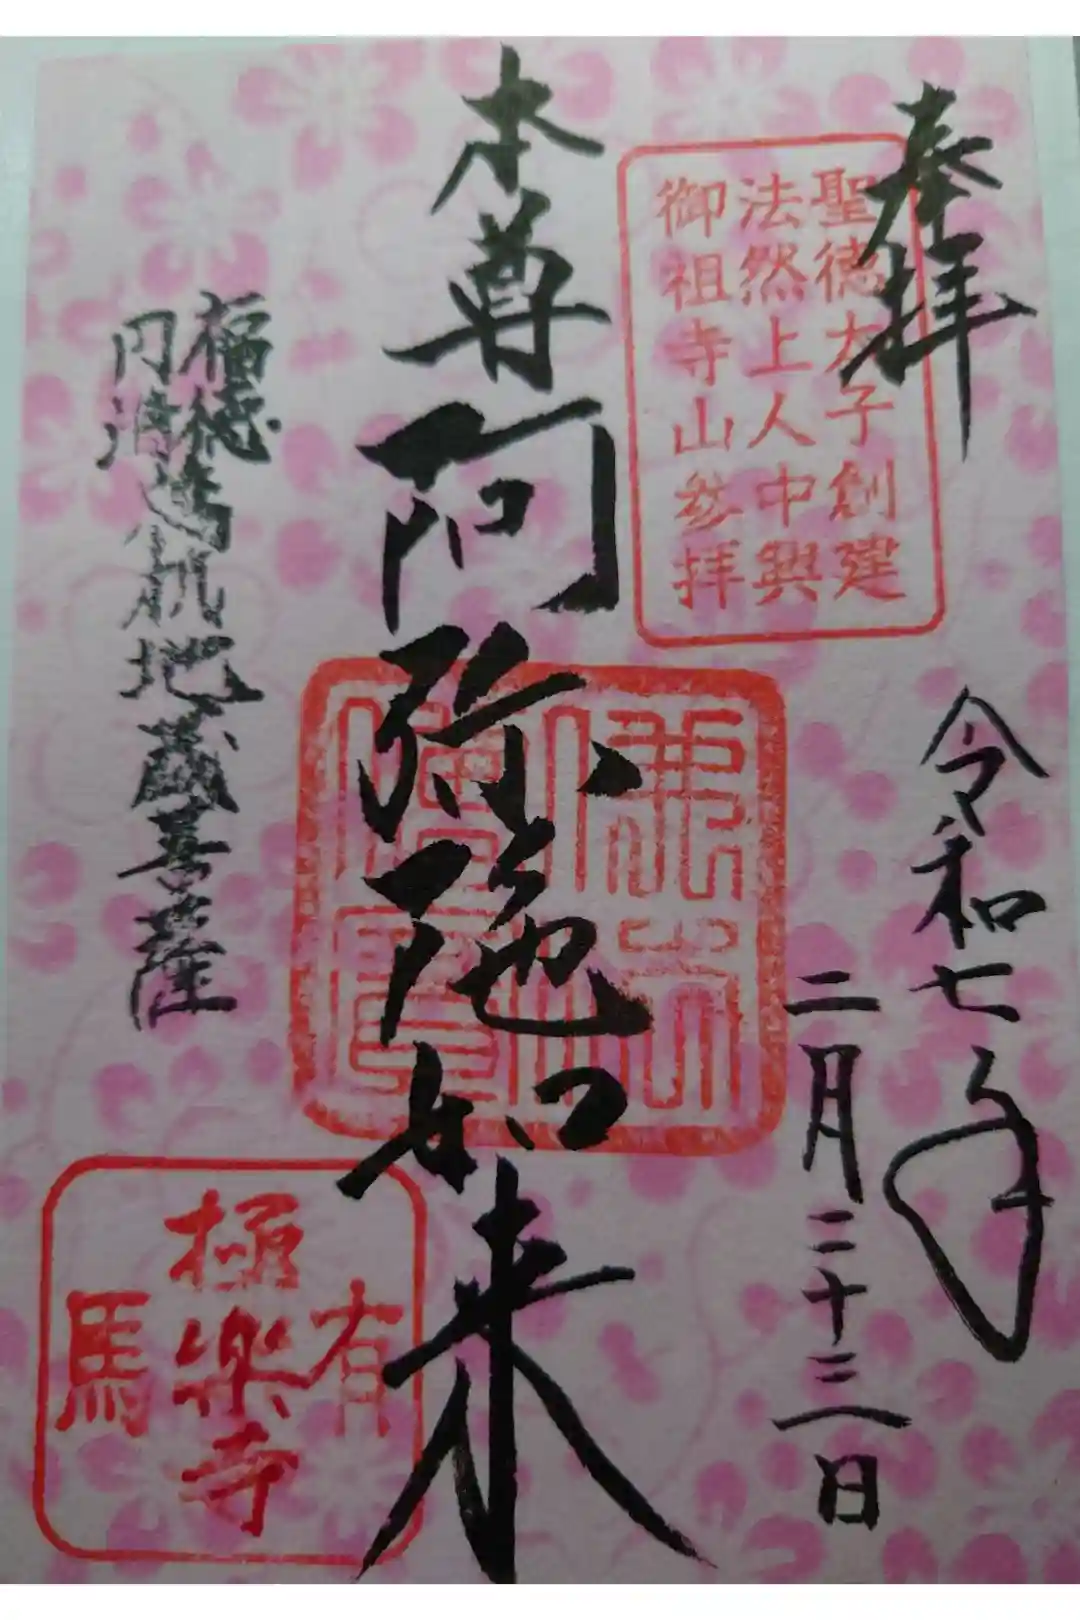 奉拝
聖徳太子創建
法然上人中興
御祖寺山参拝
令和七年
二月二十三日
本尊阿弥陀如来
佛法
僧寶
福徳
円満
地蔵菩薩
有馬
極楽寺